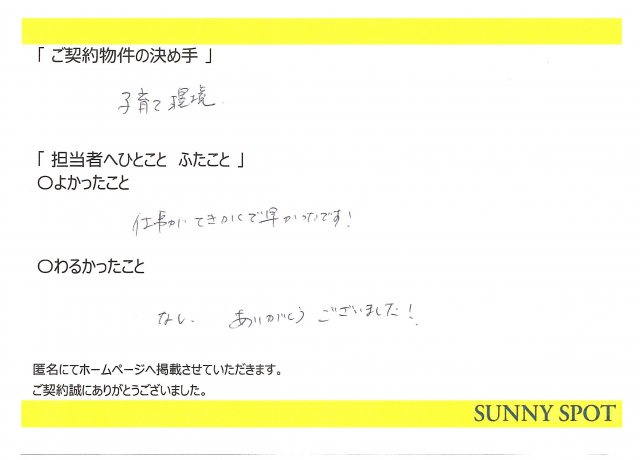 「 ご契約物件の決め手 」
子育て環境.
「 担当者へひとこと ふたこと 」
〇よかったこと
仕事が てきかくで早かったです!
〇わるかったこと
なし. ありがとう ございました!
匿名にてホームページへ掲載させていただきます。
ご契約誠にありがとうございました。
SUNNY SPOT